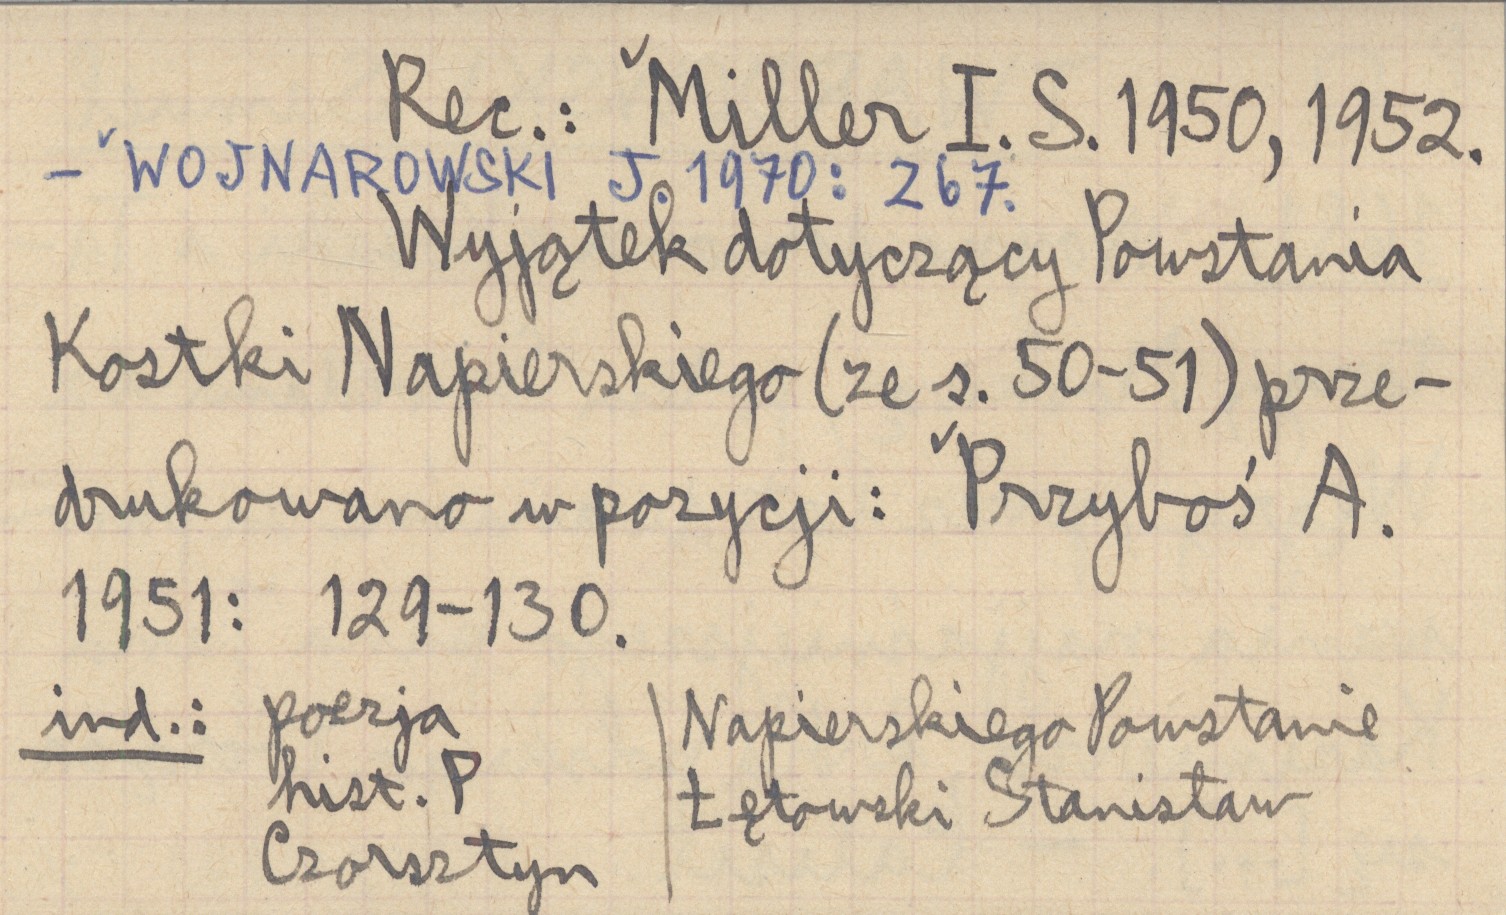 Rec.: ˇMiller I. S. 1950, 1952.
– ˇWOJNAROWSKI J. 1970: 267.
Wyjątek dotyczący Powstania
Kostki Napierskiego (ze s. 50-51) prze-
drukowano w pozycji: ˇPrzyboś A.
1951: 129-130.
ind.: poezja | Napierskiego Powstanie
hist. P | Łętowski Stanisław
Czorsztyn